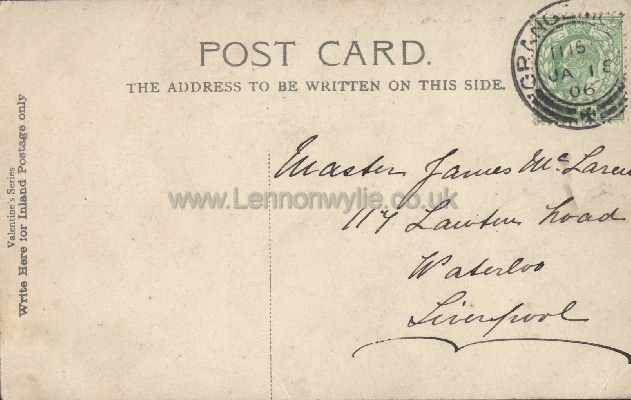 POST CARD.
THE ADDRESS TO BE WRITTEN ON THIS SIDE.
GRANGEM
11 15
JA 18
06
Valentine's Series
Write Here for Inland Postage only
Master James McLaren
www.Lennonwylie.co.uk
117 Lawton Road
Waterloo
Liverpool